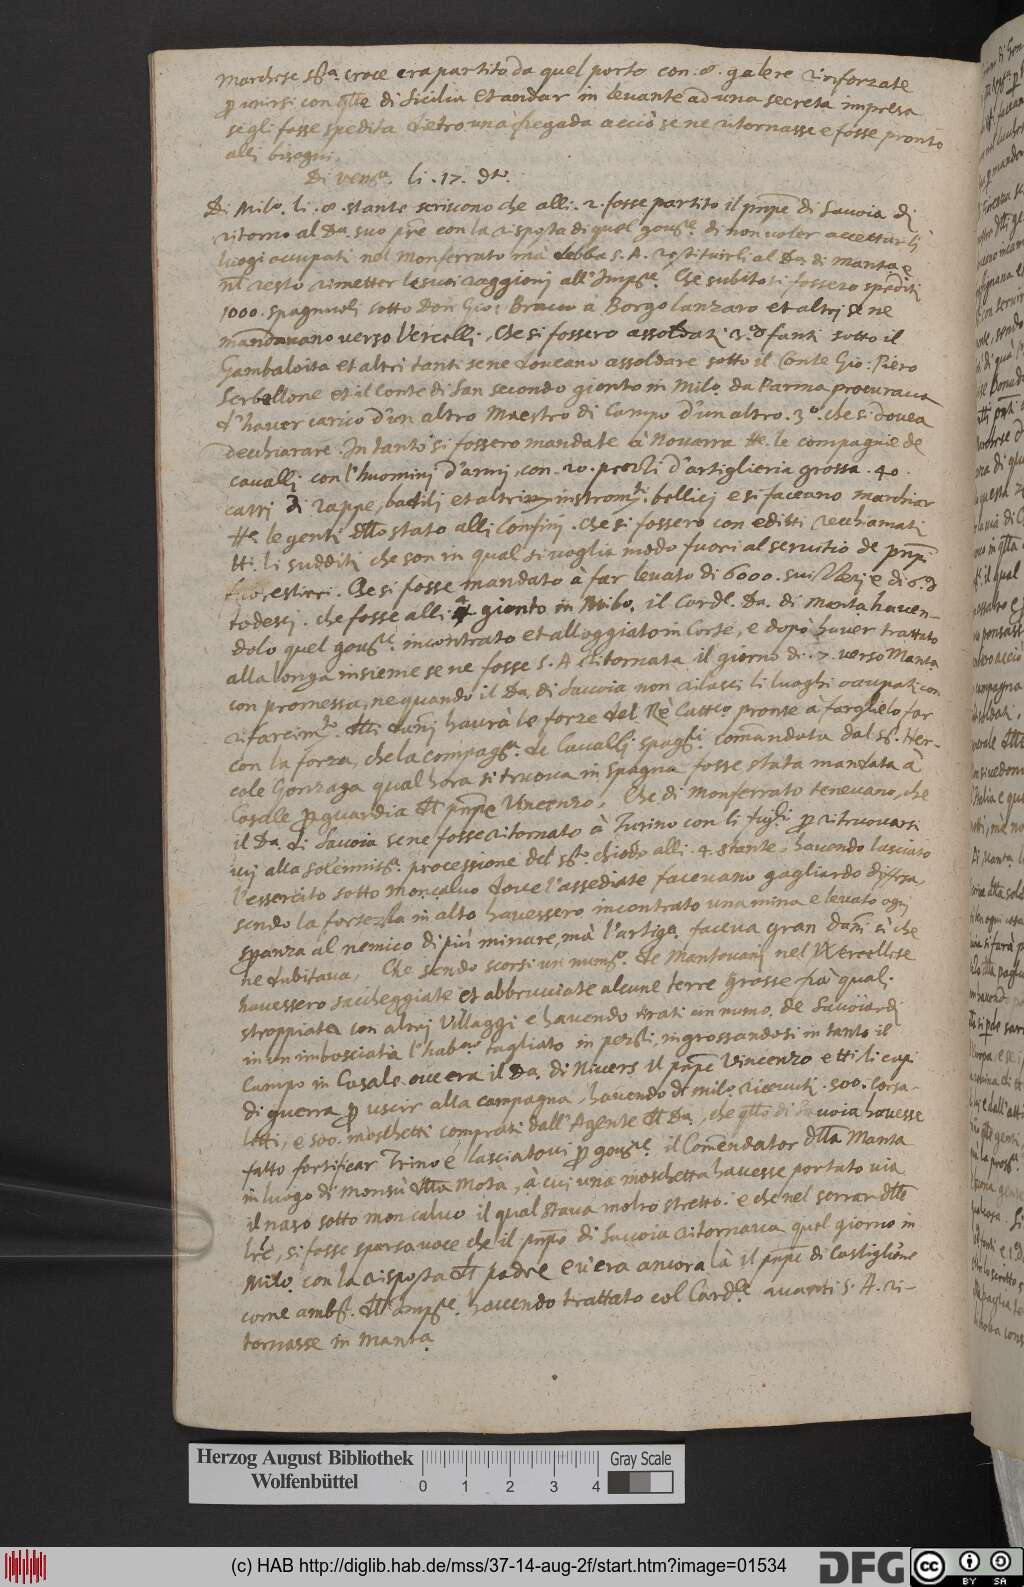 Marchese Sta. Croce era partito da quel porto con .8. galere rinforzate
p unirsi con qlle di Sicilia et andar in levante ad una secreta impresa
segli fosse spedita dietro una fregada acciò se ne ritornasse e fosse pronto
alli bisogni.
Di Vena. li .17. dto.
Di Milo. li .8. stante scrivono che alli .2. fosse partito il pnpe di Savoia di
ritorno al Da. suo pre con la risposta di quel goure. di non voler accettar li
luoghi occupati nel Monferrato mà debba S. A. restituirli al Da. di Manta. e
nel resto rimetter le sue raggioni all' Impre. Che subito si fossero spediti
1000. spagnuoli sotto Don Gio: Bravo à Borgo lanzaro et altri se ne
mandavano verso Vercelli. Che si fossero assoldati 3. fanti sotto il
Gambaloita et altri tanti se ne doveano assoldare sotto il Conte Gio: Piero
Serbellone et il Conte di San secondo gionto in Milo. da Parma procurava
d'haver carico d'un altro Maestro di Campo d'un altro .3o. che si dovea
dechiarare. In tanto si fossero mandate à Novarra tte. le compagnie de
cavalli con l'huomini d'armi, con .20. pezzi d'artiglieria grossa .40.
carri di zappe, badili et altri instromti. bellici e si faceano marchiar
tte. le genti dllo stato alli Confini. che si fossero con editti rechiamati
tti. li sudditi che son in qual si voglia modo fuori al servitio de pnpi
forestieri. Che si fosse mandato à far levata di 6000. Suizzeri e di 6.
todeschi. che fosse alli gionto in Milo. il Cardl. Da. di Manta haven-
dolo quel goure. incontrato et alloggiato in Corte, e dopò haver trattato
alla longa insieme se ne fosse S. A ritornata il giorno di .7. verso Manta.
con promessa, ne quando il Da. di Savoia non rilasci li luoghi occupati con
rifarcimto. dlli danni havrà le forze del Re Cattco. pronte à farghelo far
con la forza, che la compaga. de Cavalli spagli. comandata dal Sr. Her-
cole Gonzaga qual hora si truova in spagna fosse stata mandata à
Casale p guardia dl pnpe Vincenzo. Che di Monferrato tenevano, che
il Da. di Savoia se ne fosse ritornato à Turino con li figli p ritruovarsi
ivi alla solennissa. processione del sto. chiodo alli .4. stante, havendo lasciato
l'essercito sotto Moncalvo dove l'assediate facevano gagliardo difesa,
sendo la fortezza in alto havessero incontrato una mina e levato ogni
spanza al nemico di più minare, mà l'artiga. faceva gran danni si che
ne dubitava, Che sendo scorsi un numo. de Mantovani nel Vercellese
havessero saccheggiate et abbruciate alcune terre grosse frà quali
stroppiata con altri Villaggi e havendo tirati un numo. de Savoiardi
in un imboscata l'habno. tagliato in pezzi, ingrossandosi in tanto il
Campo in Casale ove era il Da. di Nivers il pnpe Vincenzo e tti. li capi
di guerra p uscir alla campagna, havendo di Milo. ricevuti .500. corsa-
letti, e 500. moschetti comprati dall' Agente dl Da., che qllo di Savoia havesse
fatto fortificar Trino e lasciatovi p goure. il Comendator dlla Manta
in luogo di Monsù dlla Mota, à cui una moschetta havesse portato via
il naso sotto Moncalvo il qual stava molto stretto. e che nel serrar dlle
lre, si fosse sparsa voce che il pnpe di Savoia ritornava quel giorno in
Milo. con la risposta dl padre e v'era ancora là il pnpe di Castiglione
come ambr. dll' Impre. havendo trattato col Cardle. avanti S. A. ri-
tornasse in Manta.
Herzog August Bibliothek
Wolfenbüttel
0 1 2 3 4
Gray Scale
(c) HAB http://diglib.hab.de/mss/37-14-aug-2f/start.htm?image=01534
DFG
cc BY SA